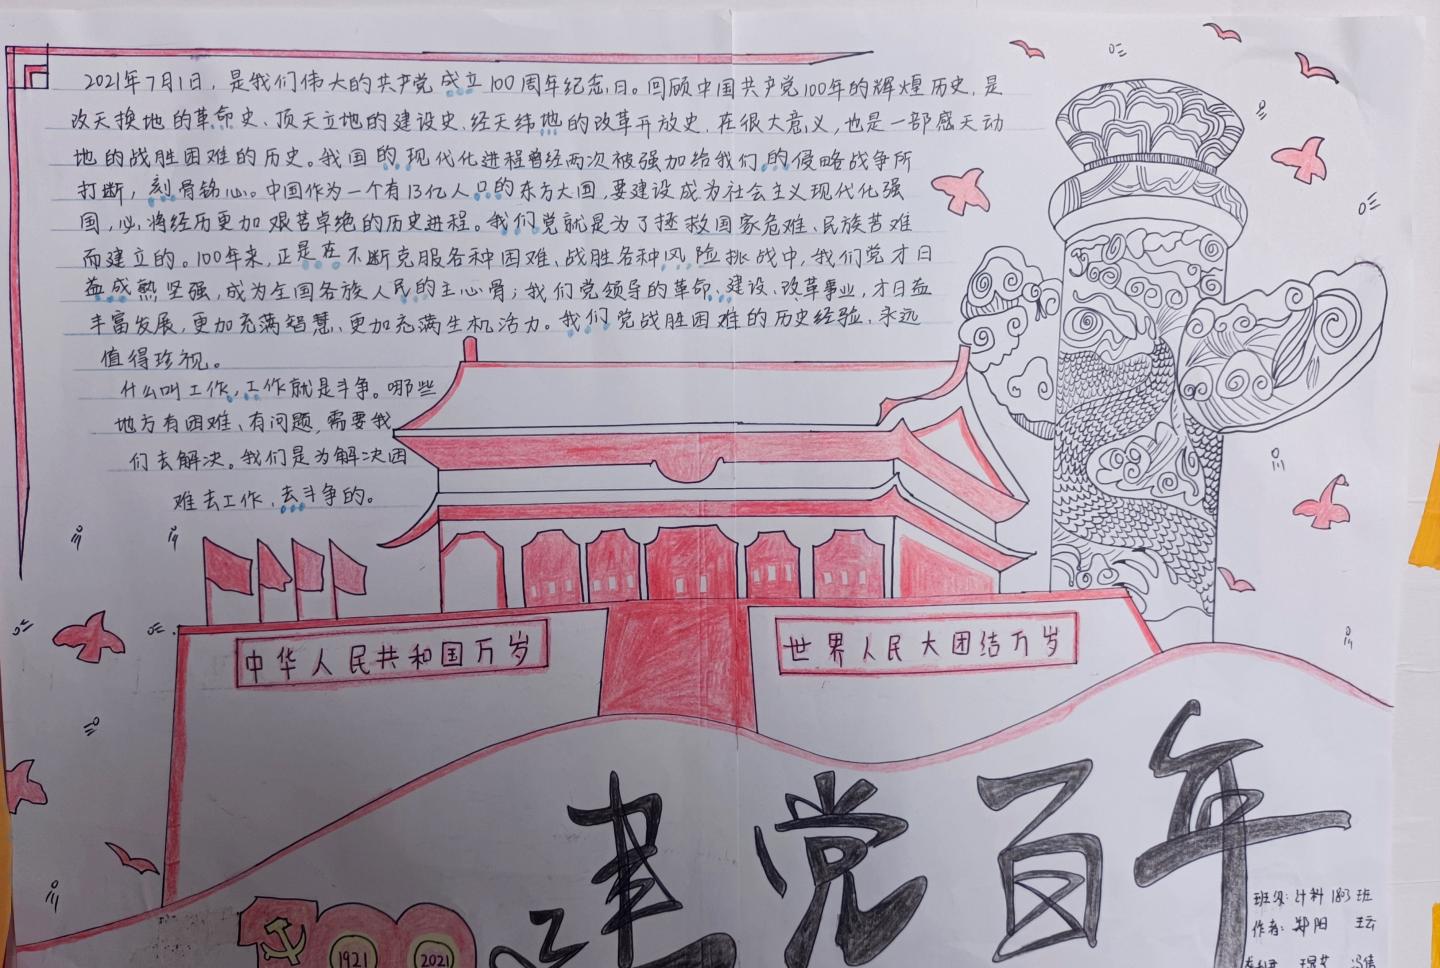 2021年7月1日，是我们伟大的共产党成立100周年纪念日。回顾中国共产党100年的辉煌历史，是
改天换地的革命史、顶天立地的建设史、经天纬地的改革开放史，在很大意义，也是一部感天动
地的战胜困难的历史。我国的现代化进程曾经两次被强加给我们的侵略战争所
打断，刻骨铭心。中国作为一个有13亿人口的东方大国，要建设成为社会主义现代化强
国，必将经历更加艰苦卓绝的历史进程。我们党就是为了拯救国家危难、民族苦难
而建立的。100年来，正是在不断克服各种困难、战胜各种风险挑战中，我们党才日
益成熟坚强，成为全国各族人民的主心骨；我们党领导的革命、建设、改革事业，才日益
丰富发展，更加充满智慧、更加充满生机活力。我们党战胜困难的历史经验，永远
值得珍视。
什么叫工作，工作就是斗争。哪些
地方有困难、有问题，需要我
们去解决。我们是为解决困
难去工作，去斗争的。
中华人民共和国万岁
世界人民大团结万岁
建党百年
1921
2021
班级：计科1803班
作者：郑阳 王云